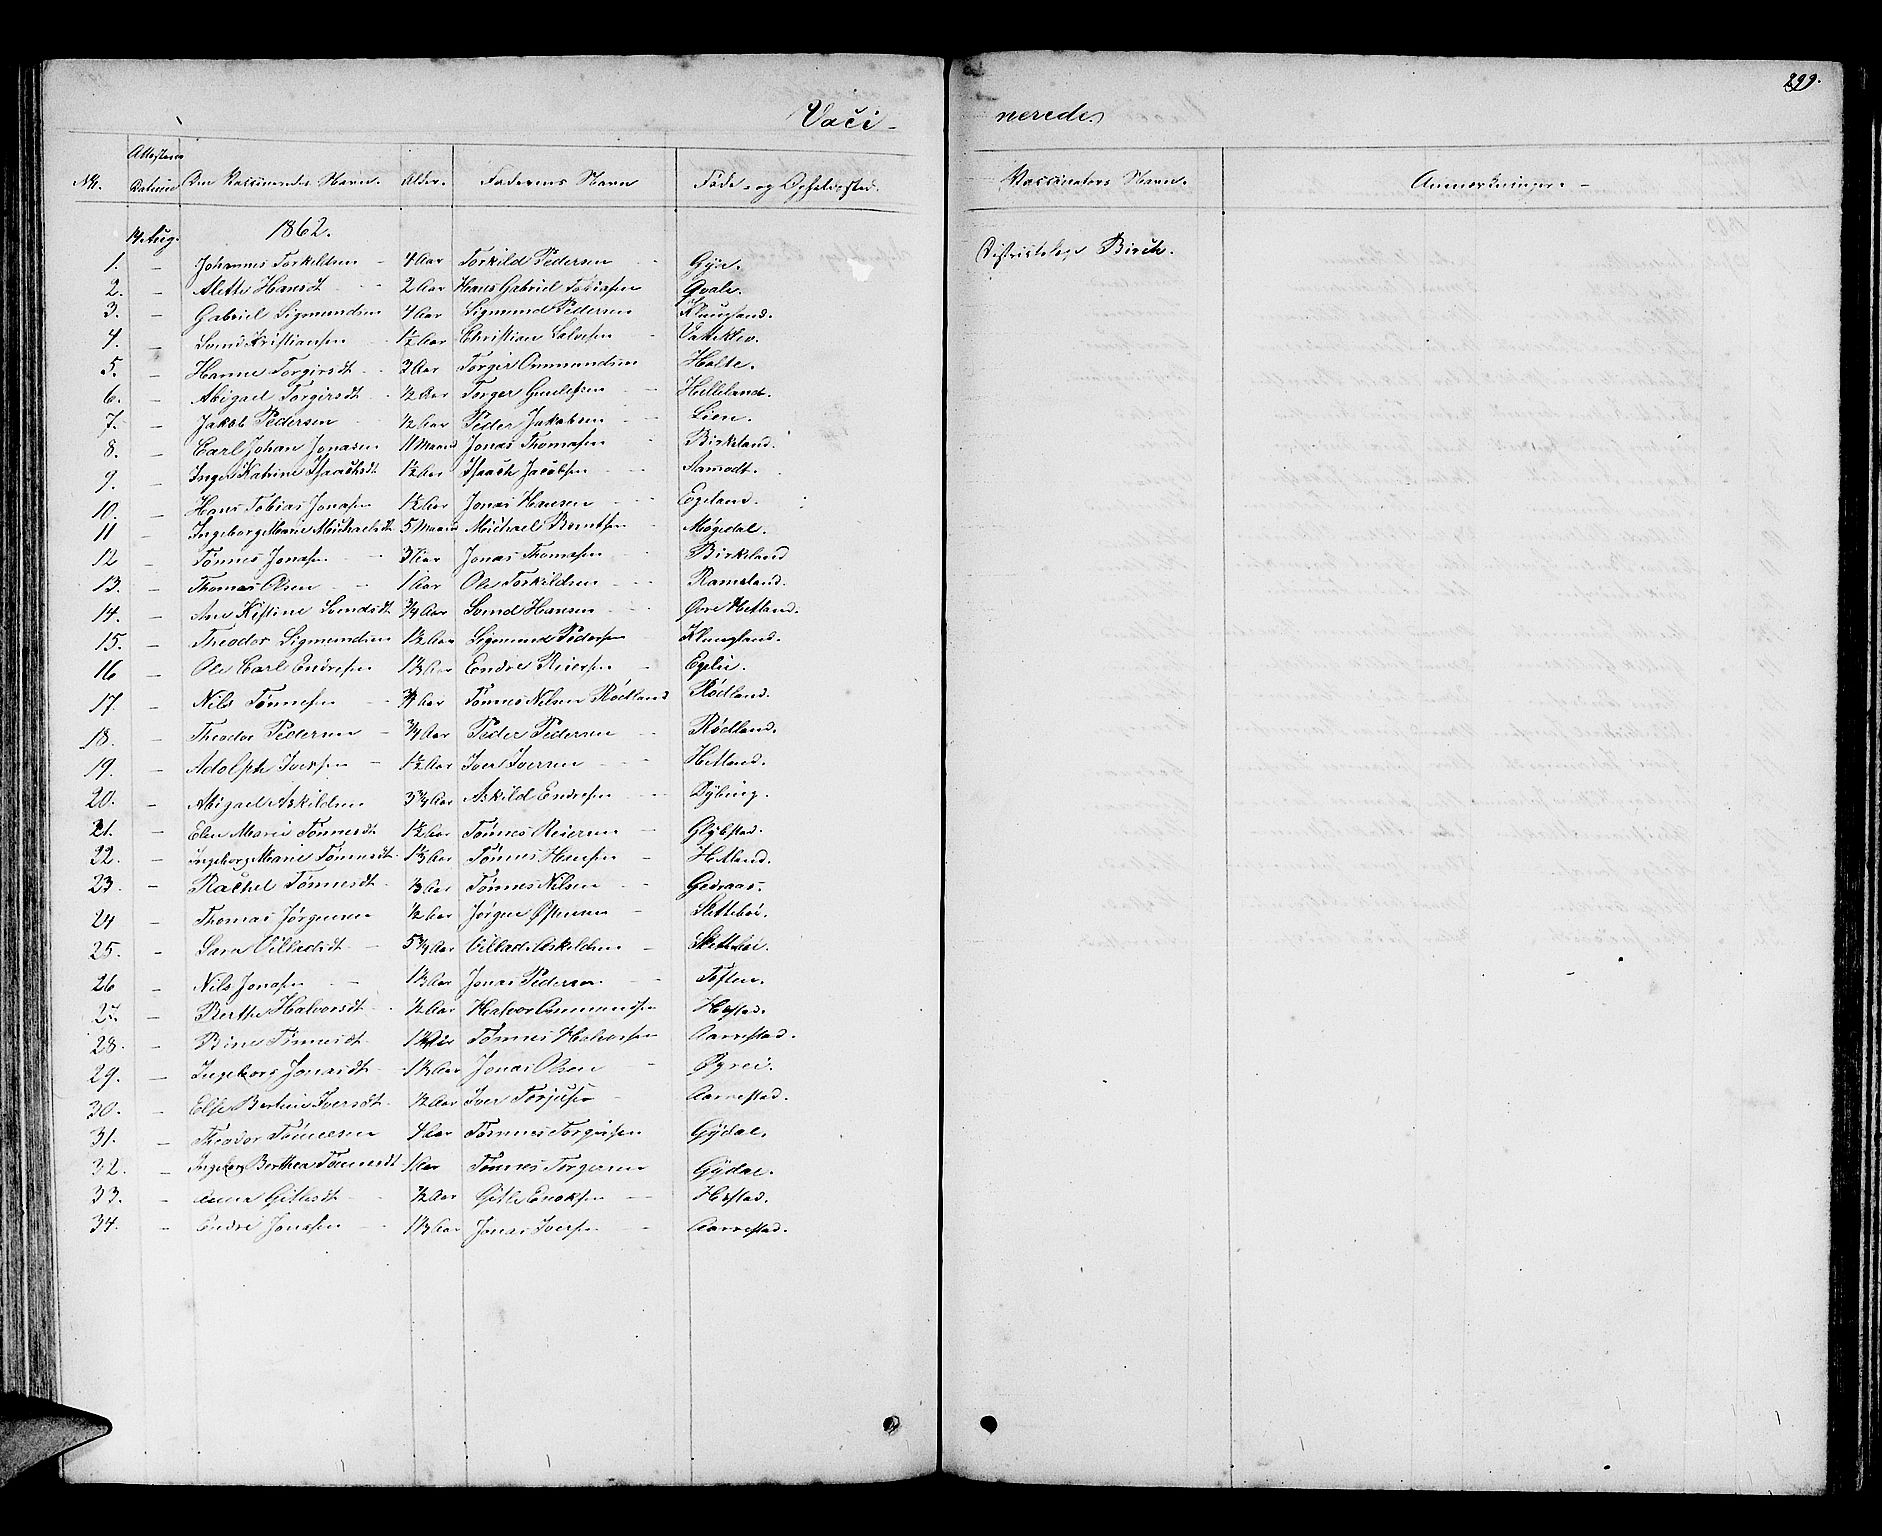 299.
Vaci- nerede
No. Attestens Datum Den Vaccineredes Navn. Alder. Faderens Navn Føde- og Opholdssted. Vaccinators Navn. Anmærkninger. -
14 Aug. 1862.
1. - Johannes Torkildsen - 4 Aar Torkild Pedersen - Gya. Districtslæge Birch.
2. - Alette Hansdt - 2 Aar Hans Gabriel Tobiasen Qvale.
3. - Gabriel Sigmundsen 4 Aar Sigmund Pedersen Klungland.
4. - Svend Kristiansen - 1½ Aar Christian Salvesen - Vatteklev.
5. - Hanne Torgirsdt - 3 Aar Torgir Ommundsen Holte.
6. - Abigael Torgirsdt - ½ Aar Torger Gundersen - Helleland.
7. - Jakob Pedersen - ½ Aar Peder Jakobsen - Lien.
8. - Carl Johan Jonasen 11 Maaned Jonas Thomasen - Birkland.
9. - Inger Katrine Isaachsdt 1½ Aar Isaach Jacobsen - Aamodt.
10. - Hans Tobias Jonasen 1½ Aar Jonas Hansen - Egeland.
11 - Ingeborg Marie Michaelsdt 5 Maaned Michael Berntsen - Møgedal.
12 - Tønnes Jonasen - 3 Aar Jonas Thomasen - Birkeland
13. - Thomas Olsen - 1 Aar Ole Torkildsen - Ramsland.
14. - Ane Kistine Svendsdt ¾ Aar Svend Hansen - Øvre Hetland.
15. - Theodor Sigmundsen 1½ Aar Sigmund Pedersen Klungland.
16 - Ole Carl Endresen 1½ Aar Endre Reiersen - Egelie.
17. - Nils Tønnesen - ¾ Aar Tønnes Nilsen Rødland Rødland.
18. - Theodor Pedersen - ¾ Aar Peder Pedersen - Rødland.
19. - Adolph Iversen - 1½ Aar Iver Iversen - Hetland.
20. - Abigael Askildsen 3¾ Aar Askild Endresen - Dybing.
21. - Elen Marie Tønnesdt 1½ Aar Tønnes Reiersen - Glybstad.
22. - Ingeborg Marie Tønnesdt 1½ Aar Tønnes Hansen - Hetland.
23. - Rachel Tønnesdt - ½ Aar Tønnes Nilsen - Gedraas.
24 - Thomas Jørgensen ½ Aar Jørgen Østensen - Slettebøe.
25. - Sara Villadsdt - 5¾ Aar Villads Askildsen - Slettebøe.
26 - Nils Jonasen - 1½ Aar Jonas Pedersen - Toften.
27. - Berthe Halvorsdt - ½ Aar Halvor Ommundsen Hæstad.
28. - Bine Tønnesdt - Tønnes Halvorsen Aarrestad.
29. - Ingeborg Jonasdt - 1½ Aar Jonas Olsen - Øgrei.
30. - Else Bertine Iversdt - ½ Aar Iver Torjusen - Aarrestad.
31. - Theodor Tønnesen 4 Aar Tønnes Torgirsen Gydal.
32. - Ingebor Berthea Tønnesdt 1 Aar Tønnes Torgersen Gydal.
33. - Anna Gitlesdt - ½ Aar Gitle Enoksen - Hæstad.
34. - Endre Jonasen - 1½ Aar Jonas Iversen - Aarrestad.